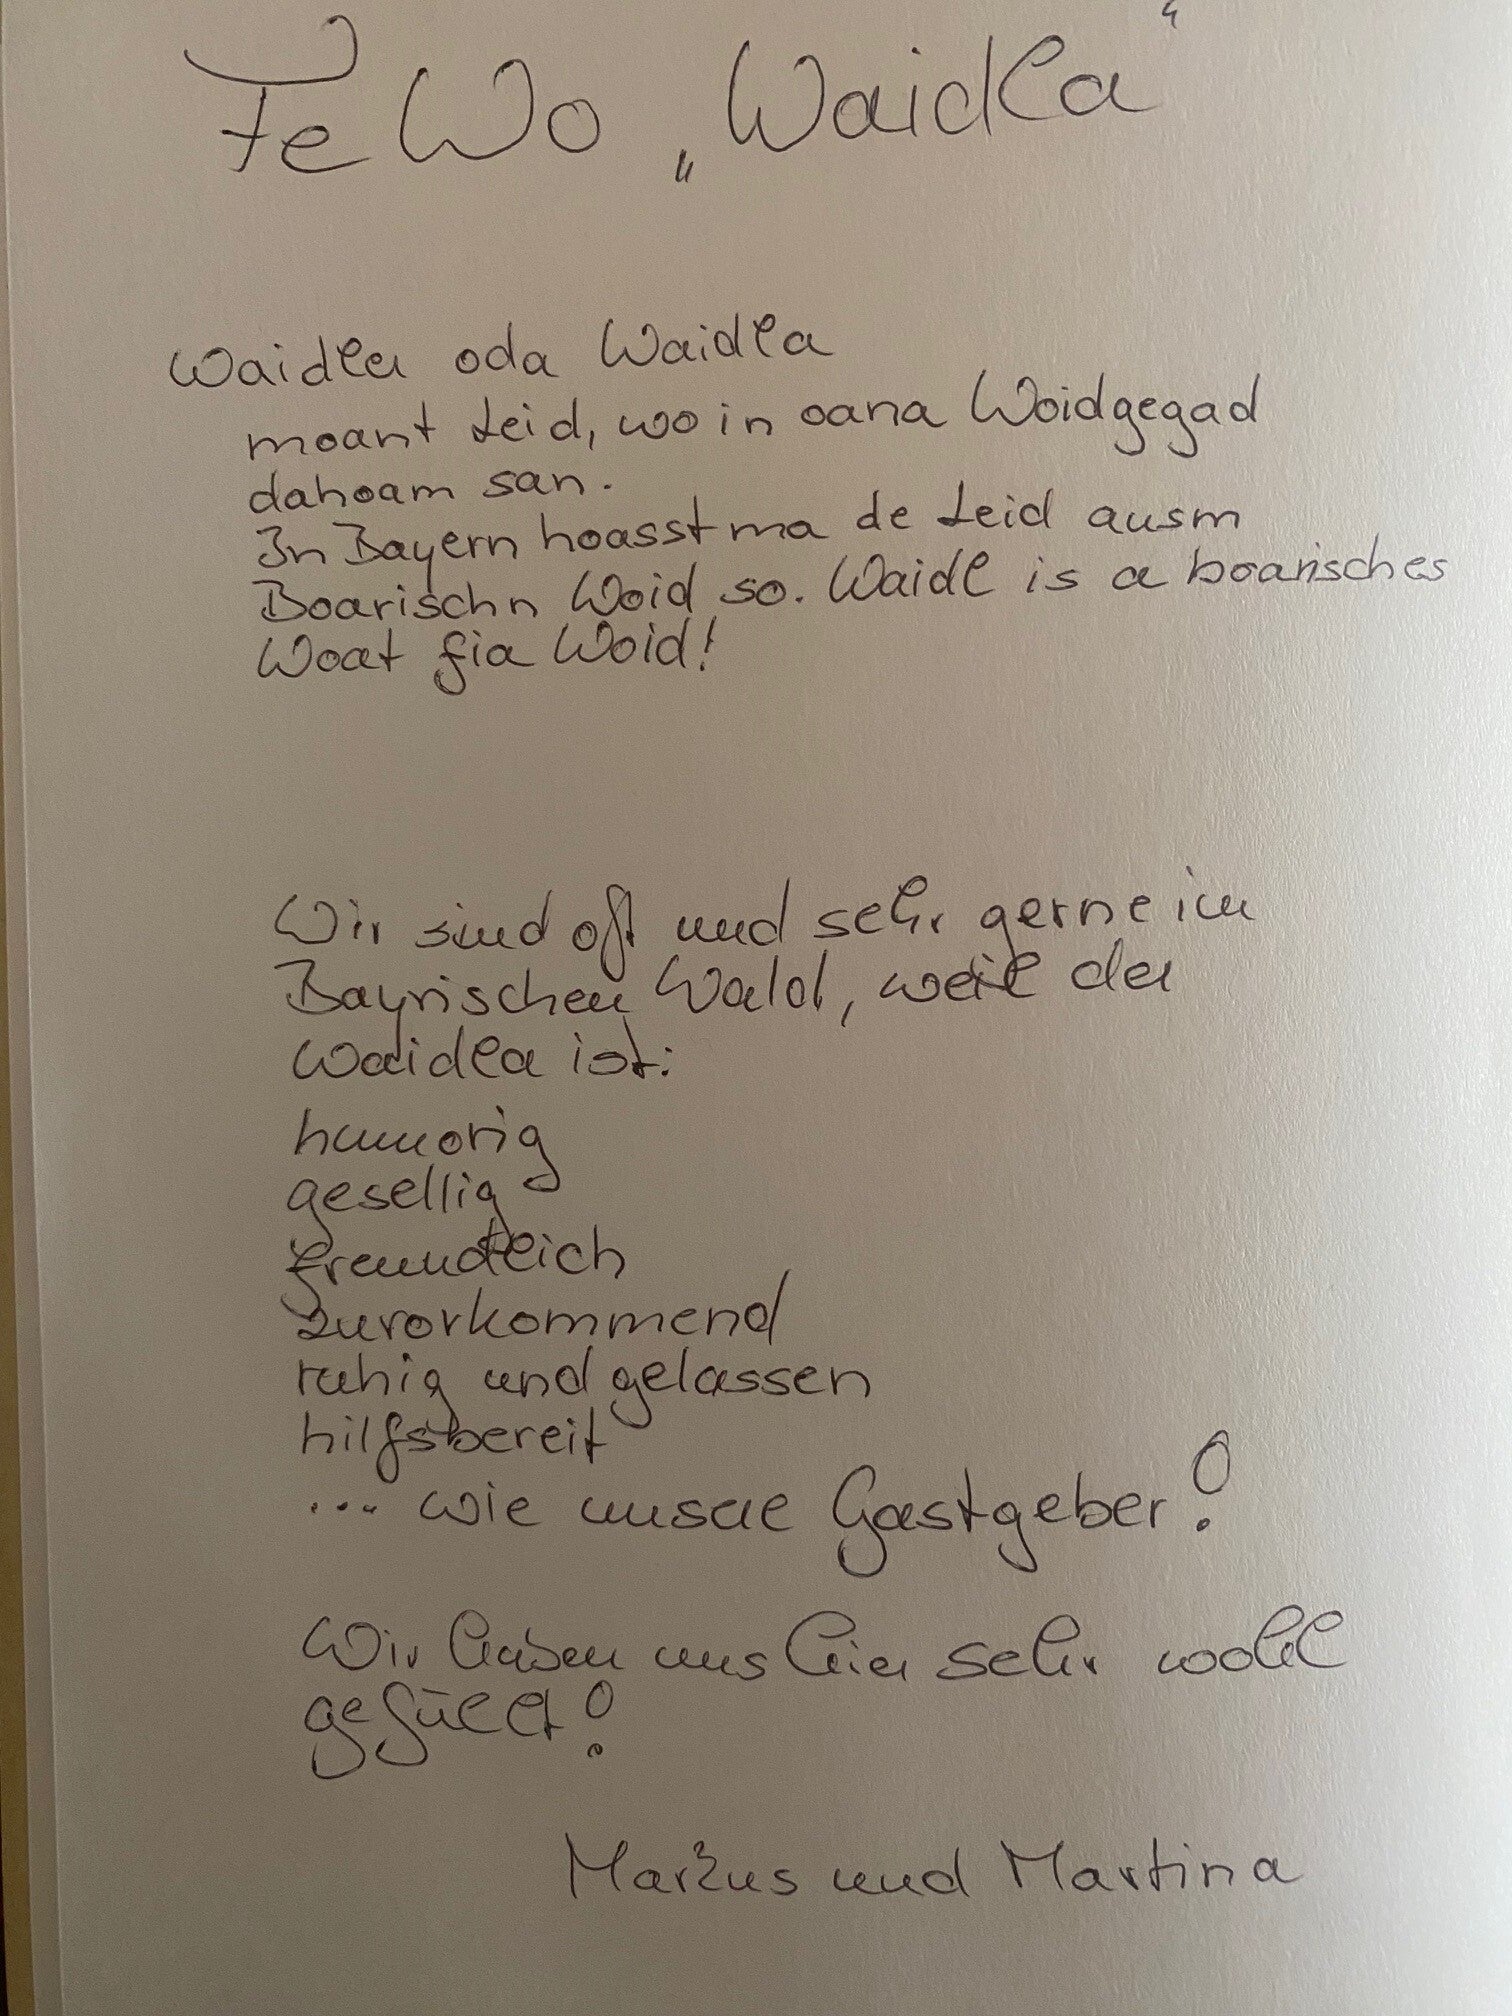 FeWo „Waidla“
Waidler oda Waidla
moant Leid, wo in oana Woidgegad
dahoam san.
In Bayern hoasst ma de Leid ausm
Boarischn Woid so. Waidl is a boarisches
Woat fia Woid!
Wir sind oft und sehr gerne im
Bayrischen Wald, weil der
Waidla ist:
humorig
gesellig
freundlich
zuvorkommend
ruhig und gelassen
hilfsbereit
... wie unsere Gastgeber!
Wir haben uns hier sehr wohl
gefühlt!
Markus und Martina